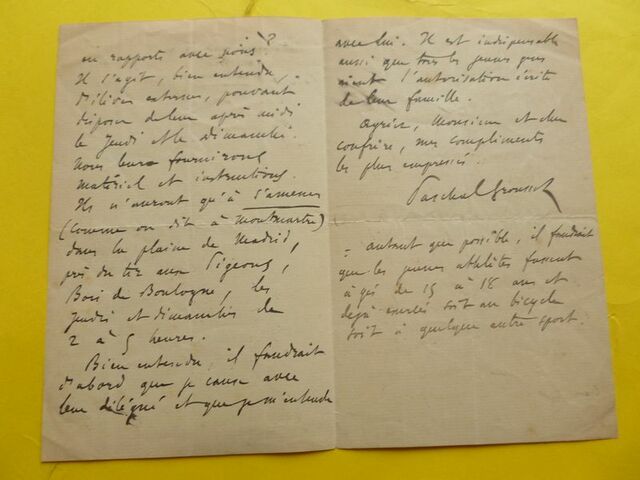 en rapports avec vous ?
Il s'agit, bien entendu,
d'élèves externes, pouvant
disposer de leur après midi
le Jeudi et le Dimanche.
Nous leur fournirons
matériel et instructions.
Ils n'auront qu'à s'amener
(comme on dit à Montmartre)
dans la plaine de Madrid,
près du tir aux Pigeons,
Bois de Boulogne, les
jeudis et dimanches de
2 à 5 heures.
Bien entendu, il faudrait
d'abord que je cause avec
leur délégué et que je m'entende
avec lui. Il est indispensable
aussi que tous les jeunes gens
aient l'autorisation écrite
de leur famille.
Agréez, Monsieur et cher
confrère, mes compliments
les plus empressés.
Paschal Grousset
autant que possible, il faudrait
que les jeunes athlètes fussent
âgés de 15 à 18 ans et
déjà exercés soit au bicycle
soit à quelque autre sport.